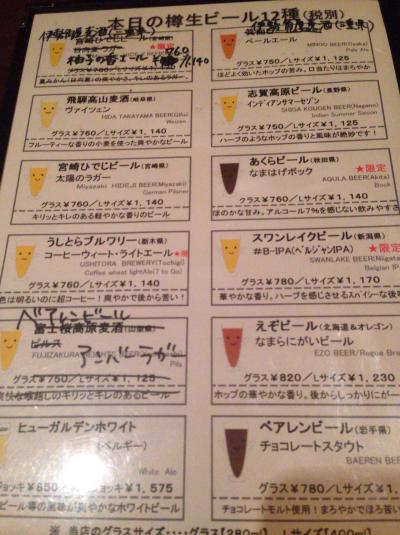 本日の樽生ビール12種(税別)
伊勢角屋麦酒(三重県)
宮崎ひでじビール(宮崎県)
★限定
柚子の香エール ¥760
¥1,140
飛騨高山麦酒(岐阜県)
ヴァイツェン
HIDA TAKAYAMA BEER(Gifu)
Weizen
グラス¥760/Lサイズ¥1,140
フルーティーな香りの小麦を使った爽やかなビール
宮崎ひでじビール(宮崎県)
太陽のラガー
★限定
Miyazaki HIDEJI BEER(Miyazaki)
German Pilsner
グラス¥760/Lサイズ¥1,140
キリッとキレのある軽やかな香りのビール
うしとらブルワリー(栃木県)
コーヒーウィート・ライトエール
★限定
USHITORA BREWERY(Tochigi)
Coffee wheat light Ale(7 to Go)
グラス¥760/Lサイズ¥1,140
色は明るいのに超コーヒー!爽やかで後から苦い!
ベアレンビール
富士桜高原麦酒(山梨県)
ピルス
アンバーラガー
FUJIZAKURA HEIGHTS BEER
Pils
グラス¥750/Lサイズ¥1,125
爽快な喉越しのキリッとキレのあるビール
ヒューガルデンホワイト
(ベルギー)
White Ale
ジョッキ¥850/ ¥1,575
ビール等の風味が爽やかなホワイトビール
伊勢角屋麦酒(三重県)
ペールエール
MINOO BEER(Osaka)
Pale Ale
グラス¥750/Lサイズ¥1,125
ほどよく効いたホップの苦み。口当たりはまろやか
志賀高原ビール(長野県)
インディアンサマーセゾン
SHIGA KOUGEN BEER(Nagano)
Indian Summer Saison
グラス¥760/Lサイズ¥1,140
ハーブのようなホップの香りと風味が絶妙です!
あくらビール(秋田県)
なまはげボック
★限定
AQULA BEER(Akita)
Bock
グラス¥760/Lサイズ¥1,140
ほのかな甘み。アルコール7%を感じない飲みやすさ
スワンレイクビール(新潟県)
#B-IPA(ベルジャンIPA)
★限定
SWANLAKE BEER(Niigata
Belgian IPA
グラス¥780/Lサイズ¥1,170
華やかな香り。ハーブを感じさせるスパイシーな後味
えぞビール(北海道&オレゴン)
なまらにがいビール
EZO BEER/Rogue Brew
グラス¥820/Lサイズ¥1,230
ホップの華やかな香り。後からしっかりにがー
ベアレンビール(岩手県)
チョコレートスタウト
BAEREN BEER
グラス¥780/Lサイズ¥1,
チョコレートモルト使用!まろやかでほろ苦
※ 当店のグラスサイズ・・・・グラス[280ml] Lサイズ[400ml]